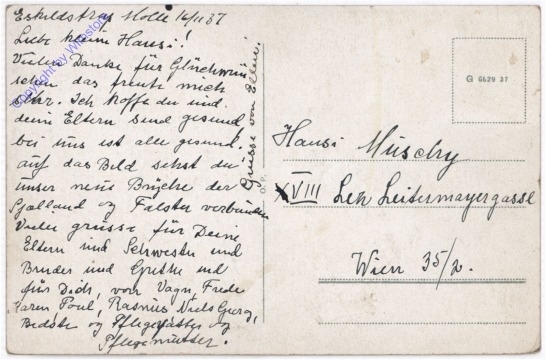 Eskildstrup Molle 16/11 37
Liebe kleine Hansi!
Vielen Danke für Glückwün
schen das freut mich
sehr. Ich hoffe du und
dein Eltern sind gesund,
bei uns ist alle gesund.
auf das Bild sehst du
unser neue Brücke der
Sjælland og Falster verbinden
Vielen grusse für Deine
Eltern und Schwester und
Bruder und Grethe und
für Dich, von Vagn, Frede
Karen Poul, Rasmus Niels Georg,
Bedste og Pflegefatter og
Pflegemutter.
Grüsse von Eltern.
G 6629 37
Hansi
XVIII
Leitermayergasse
Wien 35/2.